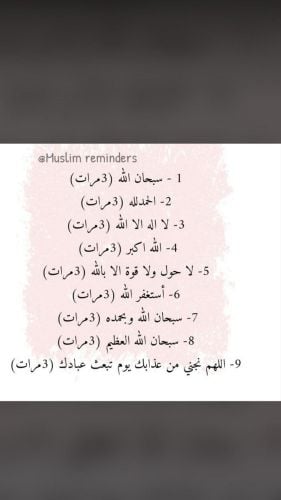 @Muslim reminders
1 - سبحان الله (3مرات)
2- الحمدلله (3مرات)
3- لا اله الا الله (3مرات)
4- الله اكبر (3مرات)
5- لا حول ولا قوة الا بالله (3مرات)
6- أستغفر الله (3مرات)
7- سبحان الله وبحمده (3مرات)
8- سبحان الله العظيم (3مرات)
9- اللهم نجني من عذابك يوم تبعث عبادك (3مرات)